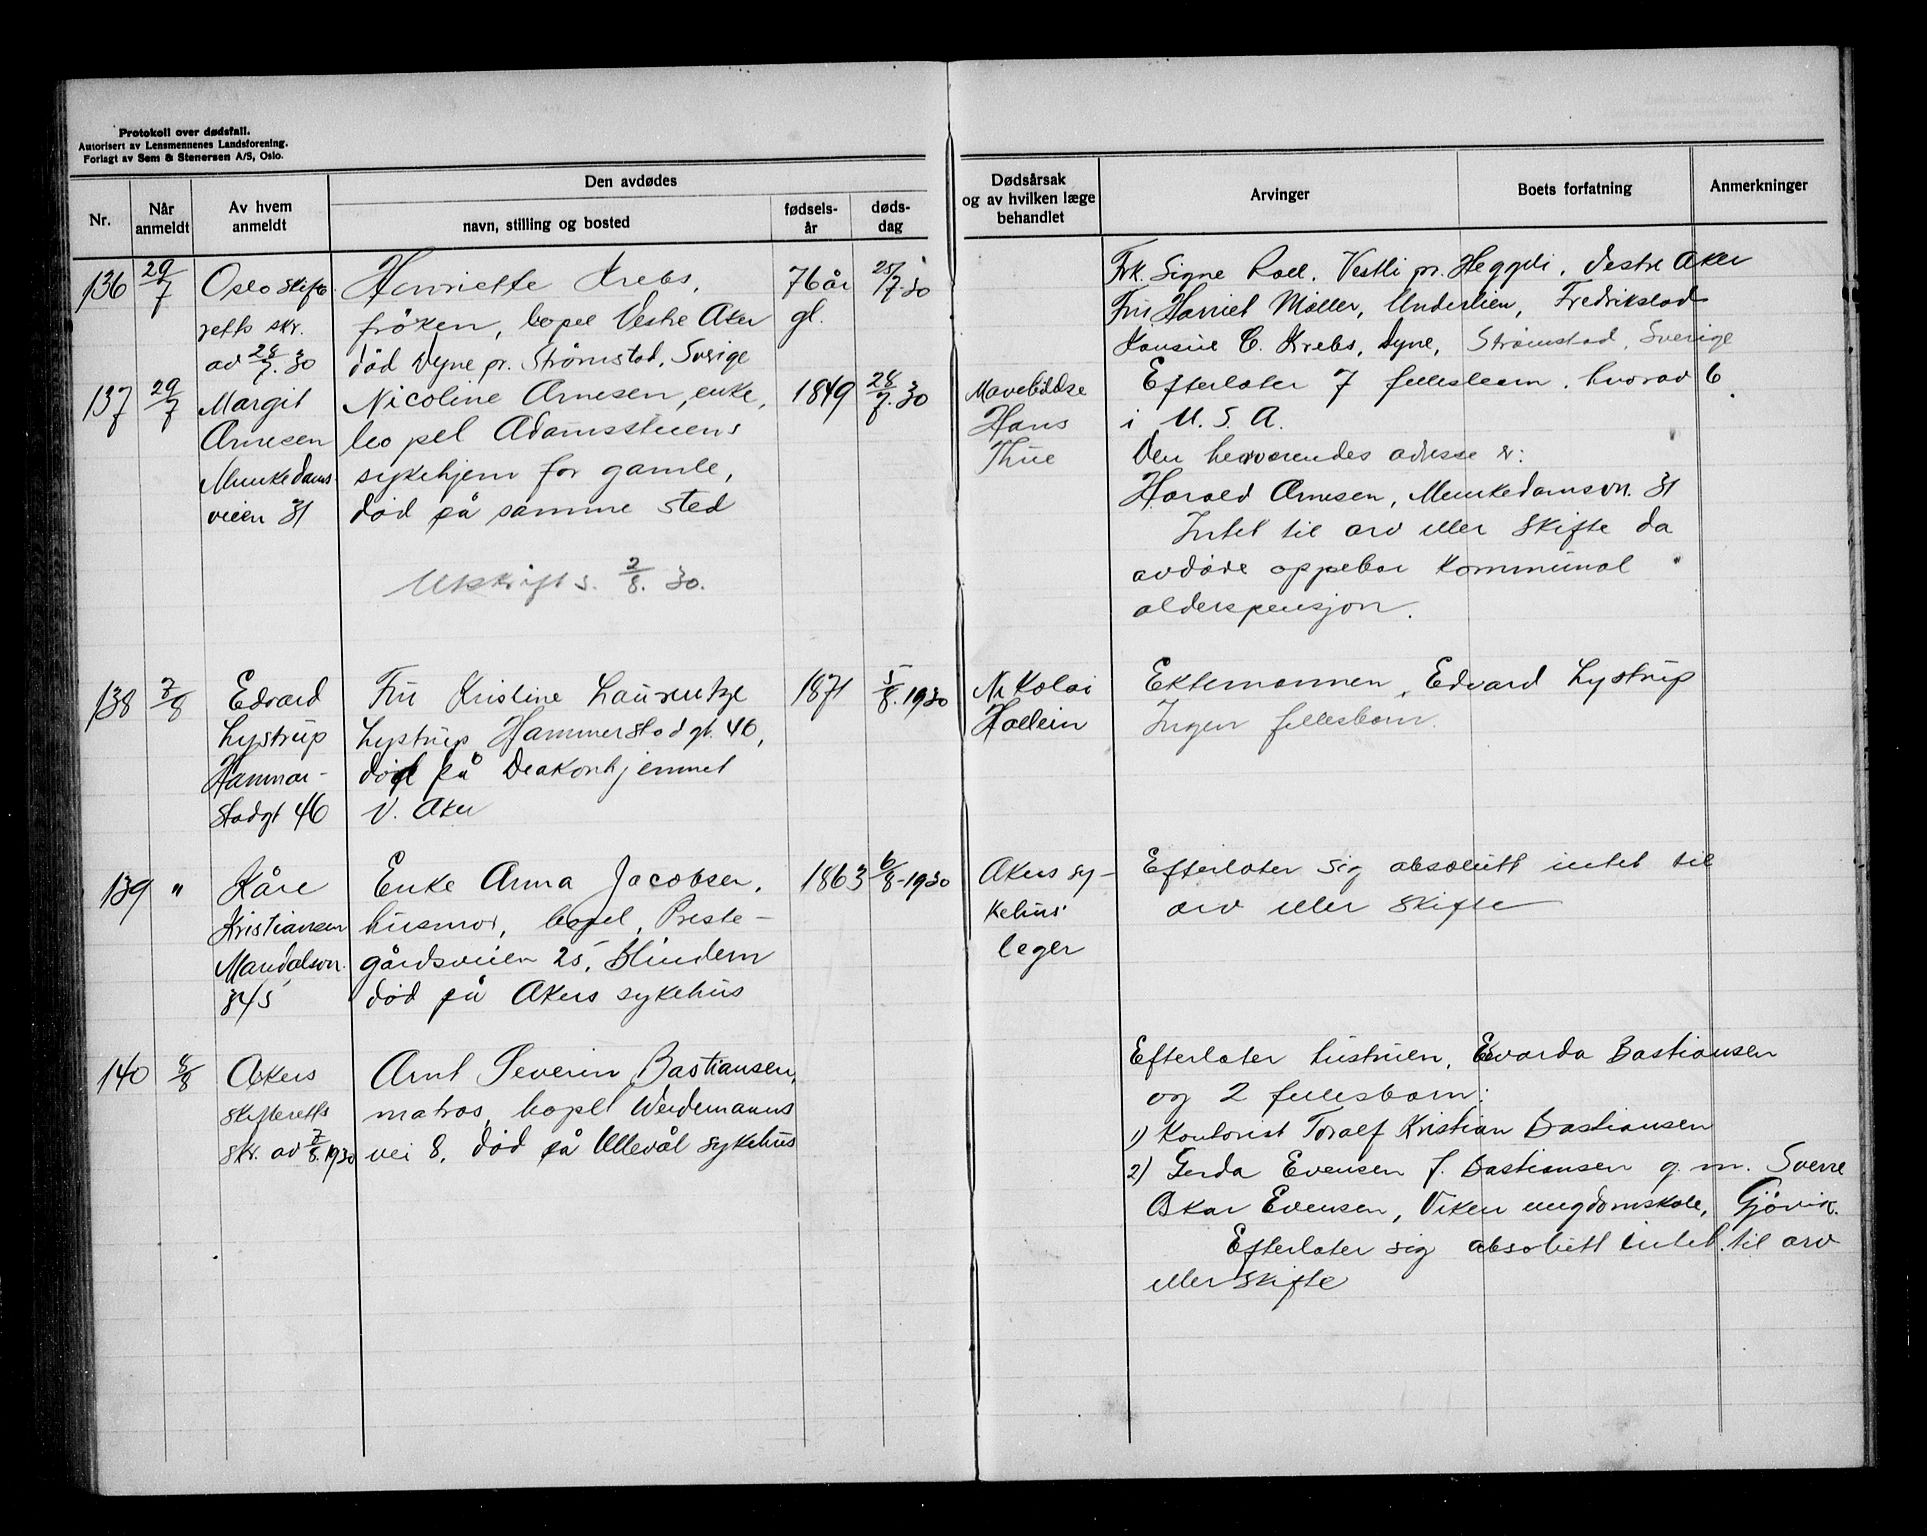 Protokoll over dødsfall.
Autorisert av Lensmennenes Landsforening.
Forlagt av Sem & Stenersen A/S, Oslo.
Nr.
Når anmeldt
Av hvem anmeldt
Den avdødes
navn, stilling og bosted
fødselsår
dødsdag
Dødsårsak
og av hvilken læge
behandlet
Arvinger
Boets forfatning
Anmerkninger
136 29/7 Oslo skifte- Henriette Krebs, 76 år 25/7.30
retts skr. frøken, bopel Vestre Aker gl.
av 28/7.30 død Dyne pr. Strømstad, Sverige
Frk. Signe Roll, Vestli pr. Heggeli, Vestre Aker
Fru Harriet Møller, Underlien, Fredrikstad
Konsul C. Krebs, Dyne, Strømstad, Sverige
137 29/7 Margit Nicoline Arnesen, enke, 1849 28/7.30
Arnesen bopel Adamsstuens
Munkedams- sykehjem for gamle,
veien 31 død på samme sted
Utskrift s. 2/8.30.
Hans
Thue
Efterlater 7 fellesbarn, hvorav 6
i U.S.A.
Den herværendes adresse er:
Harald Arnesen, Munkedamsvn. 31
Intet til arv eller skifte da
avdøde oppebar kommunal
alderspensjon.
138 7/8 Edvard Fru Kristine Laurentze 1871 5/8.1930
Lystrup Lystrup Hammerstadgt. 46,
Hammer- død på Deakonhjemmet
stadgt 46 V. Aker
Nikolai
Hallein
Ektemannen, Edvard Lystrup
Ingen fellesbarn.
139 " Kåre Enke Anna Jacobsen, 1863 6/8-1930
Kristiansen husmor, bopel Preste-
Mandalsvn. gårdsveien 25, Blindern
død på Akers sykehus
Akers sy-
kehus'
leger
Efterlater sig absolutt intet til
arv eller skifte
140 8/8 Akers Arnt Severin Bastiansen,
skifteretts matros, bopel Weidemanns
skr. av 7/8.1930 vei 8, død på Ullevål sykehus
Efterlater hustruen, Evarda Bastiansen
og 2 fellesbarn:
1) Kontorist Toralf Kristian Bastiansen
2) Gerda Evensen f. Bastiansen g. m. Sverre
Oskar Evensen, Viken ungdomskole, Gjøvik.
Efterlater sig absolutt intet til arv
eller skifte